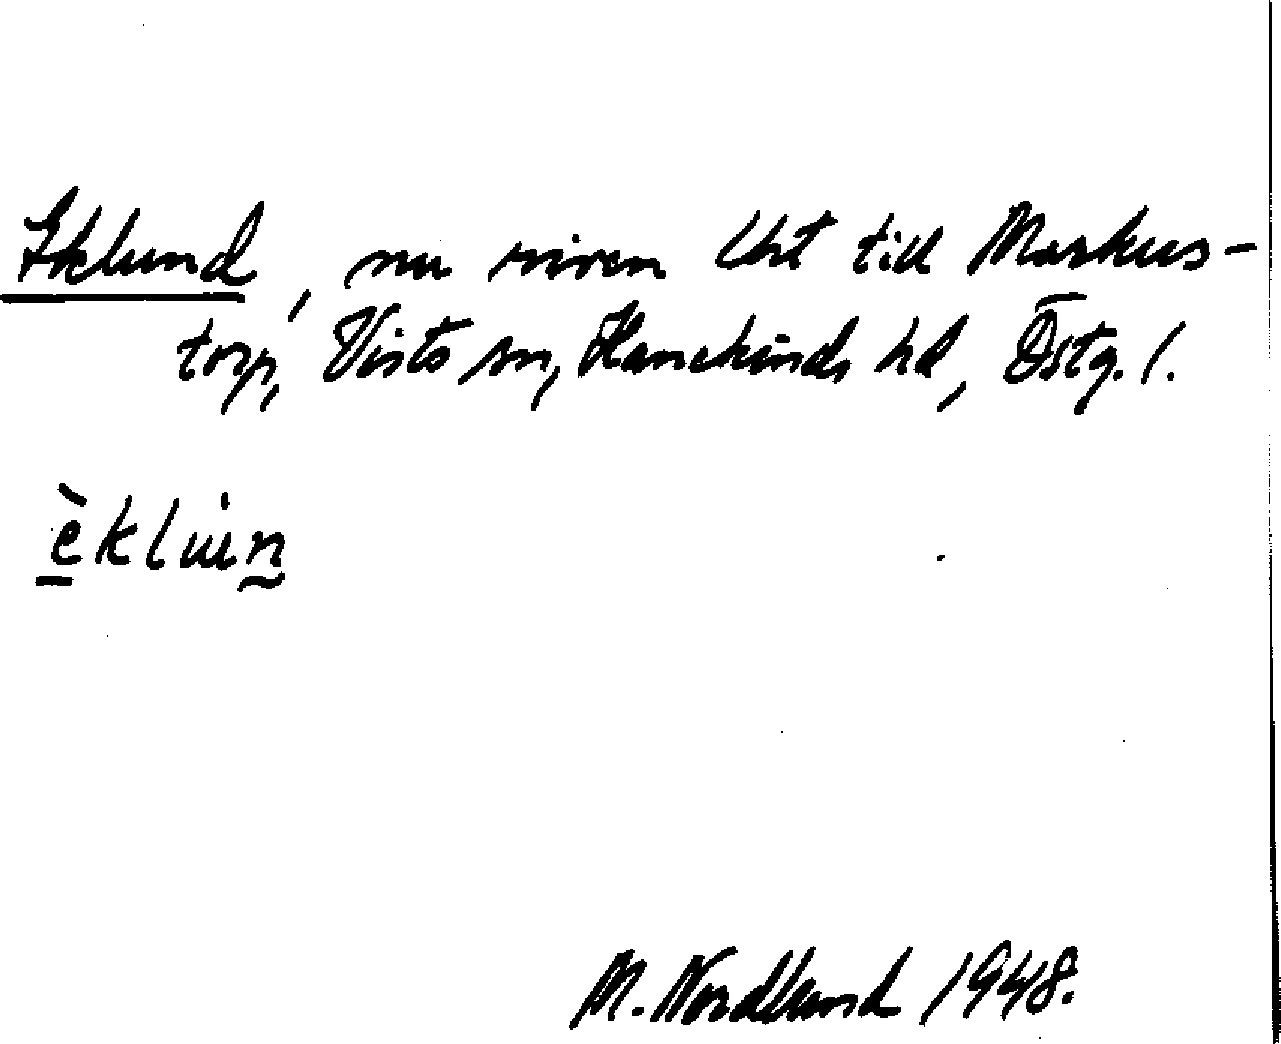 Eklund, nu riven lht till Markus-
torp, Vists sn, Hanekinds hd, Östg. l.
èkluǹn
M. Nordlund 1948.